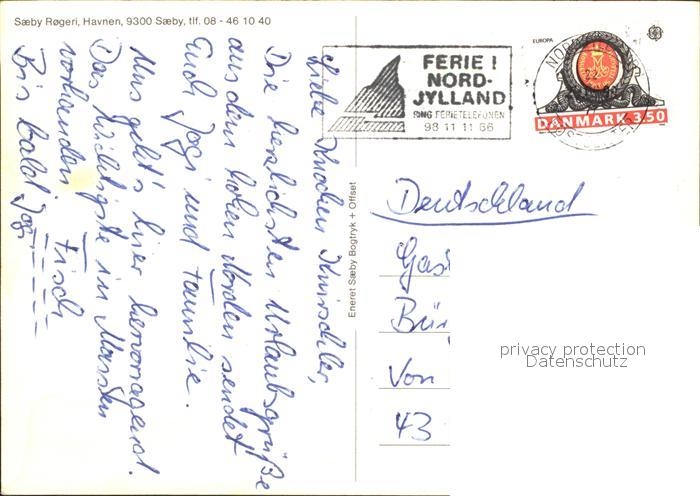 Sæby Røgeri, Havnen, 9300 Sæby, tlf. 08 - 46 10 40
Liebe Knochen Knirschler,
Die herzlichsten Urlaubsgrüße
aus dem hohen Norden sendet
Euch Jogi und Familie.
Uns geht's hier hervorragend.
Das Wichtigste in Massen
vorhanden Fisch
Bis bald Jogi
Eneret Sæby Bogtryk + Offset
FERIE I
NORD-
JYLLAND
RING FERIETELEFONEN
98 11 11 66
EUROPA
DANMARK 3.50
Deutschland
Gas
Bür
Von
43
privacy protection
Datenschutz